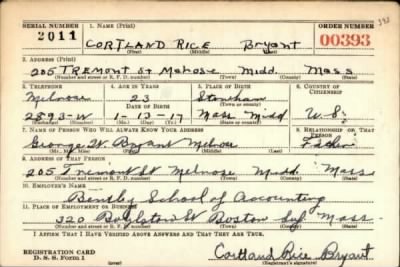 SERIAL NUMBER 1. NAME (Print) ORDER NUMBER
2011 CORTLAND RICE Bryant 00393
(First) (Middle) (Last)
2. ADDRESS (Print)
205 TREMONT St Melrose Midd. Mass
(Number and street or R. F. D. number) (Town) (County) (State)
3. TELEPHONE 4. AGE IN YEARS 5. PLACE OF BIRTH 6. COUNTRY OF CITIZENSHIP
Melrose 23 Stoneham
DATE OF BIRTH (Town or county)
2893-W 1-13-17 Mass Midd U.S.
(Exchange) (Number) (Mo.) (Day) (Yr.) (State or country)
7. NAME OF PERSON WHO WILL ALWAYS KNOW YOUR ADDRESS 8. RELATIONSHIP OF THAT PERSON
George W. Bryant Melrose Father
(Mr., Mrs., Miss) (First) (Middle) (Last)
9. ADDRESS OF THAT PERSON
205 Tremont St Melrose Midd Mass
(Number and street or R. F. D. number) (Town) (County) (State)
10. EMPLOYER'S NAME
Bentley School of Accounting
11. PLACE OF EMPLOYMENT OR BUSINESS
320 Boylston St Boston Suf Mass
(Number and street or R. F. D. number) (Town) (County) (State)
I AFFIRM THAT I HAVE VERIFIED ABOVE ANSWERS AND THAT THEY ARE TRUE.
REGISTRATION CARD
D. S. S. Form 1
Cortland Rice Bryant
(Registrant's signature)